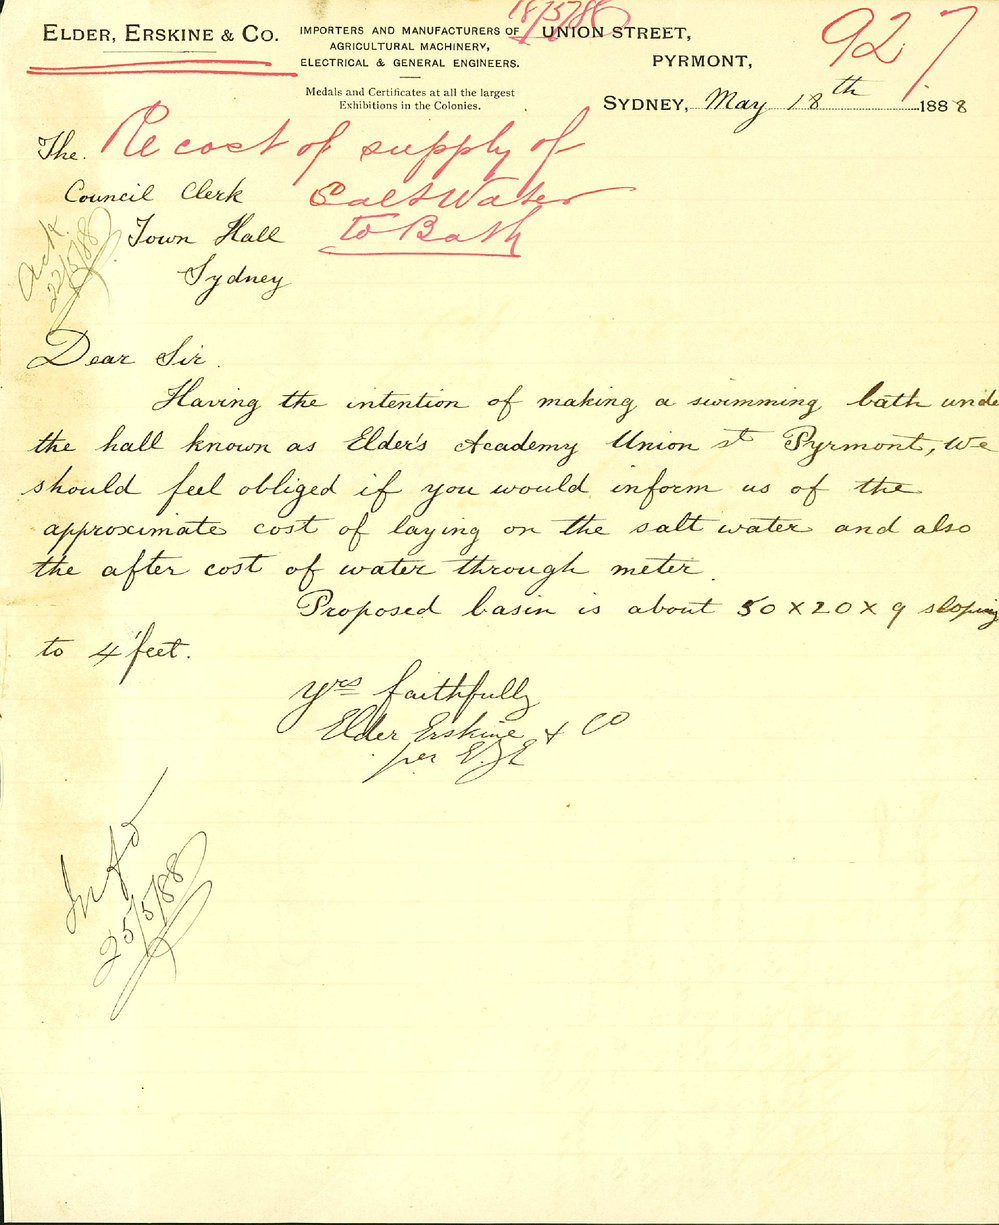 18/5/88
927
ELDER, ERSKINE & CO.
IMPORTERS AND MANUFACTURERS OF
AGRICULTURAL MACHINERY,
ELECTRICAL & GENERAL ENGINEERS.
Medals and Certificates at all the largest
Exhibitions in the Colonies.
UNION STREET,
PYRMONT,
SYDNEY, May 18th 1888
Re cost of supply of
Salt Water
to Bath
The.
Council Clerk
Town Hall
Sydney
Ack.
22/5/88
Dear Sir.
Having the intention of making a swimming bath unde
the hall known as Elder's Academy Union st Pyrmont, we
should feel obliged if you would inform us of the
approximate cost of laying on the salt water and also
the after cost of water through meter.
Proposed basin is about 50 x 20 x 9 sloping
to 4 feet.
Yrs faithfully
Elder Erskine & Co
per
Infd
25/5/88